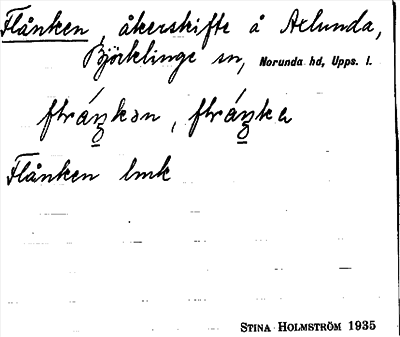 Flånken, åkerskifte å Axlunda,
Björklinge sn, Norunda hd, Upps. l.
Flånken lmk
STINA HOLMSTRÖM 1935